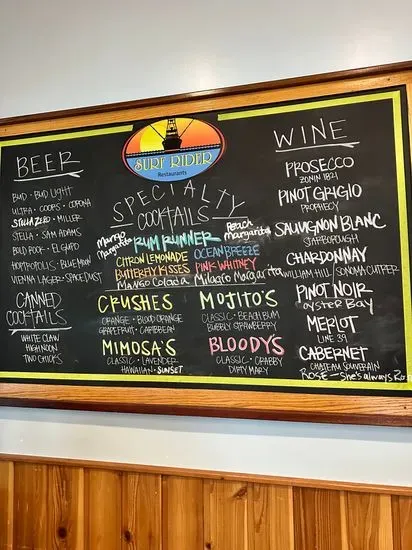 SURF RIDER
Restaurants
BEER
BUD · BUD LIGHT
ULTRA · COORS · CORONA
STELLA ZERO · MILLER
STELLA · SAM ADAMS
BUD ROCK · EL GUAPO
HOPTOPOLIS · BLUE MOON
VIENNA LAGER · SPACE DUST
CANNED
COCKTAILS
WHITE CLAW
HIGH NOON
TWO CHICKS
SPECIALTY
COCKTAILS
Mango
Margarita
RUM RUNNER
Peach
Margarita
CITRON LEMONADE
OCEAN BREEZE
BUTTERFLY KISSES
PINK WHITNEY
Mango Colada Milagro Margarita
CRUSHES
ORANGE · BLOOD ORANGE
GRAPEFRUIT · CARIBBEAN
MIMOSA'S
CLASSIC · LAVENDER
HAWAIIAN · SUNSET
MOJITO'S
CLASSIC · BEACH BUM
BUBBLY STRAWBERRY
BLOODY'S
CLASSIC · CRABBY
DIRTY MARY
WINE
PROSECCO
ZONIN 1821
PINOT GRIGIO
PROPHECY
SAUVIGNON BLANC
STARBOROUGH
CHARDONNAY
WILLIAM HILL · SONOMA CUTRER
PINOT NOIR
OYSTER BAY
MERLOT
LINE 39
CABERNET
CHATEAU SOUVERAIN
ROSE - She's always